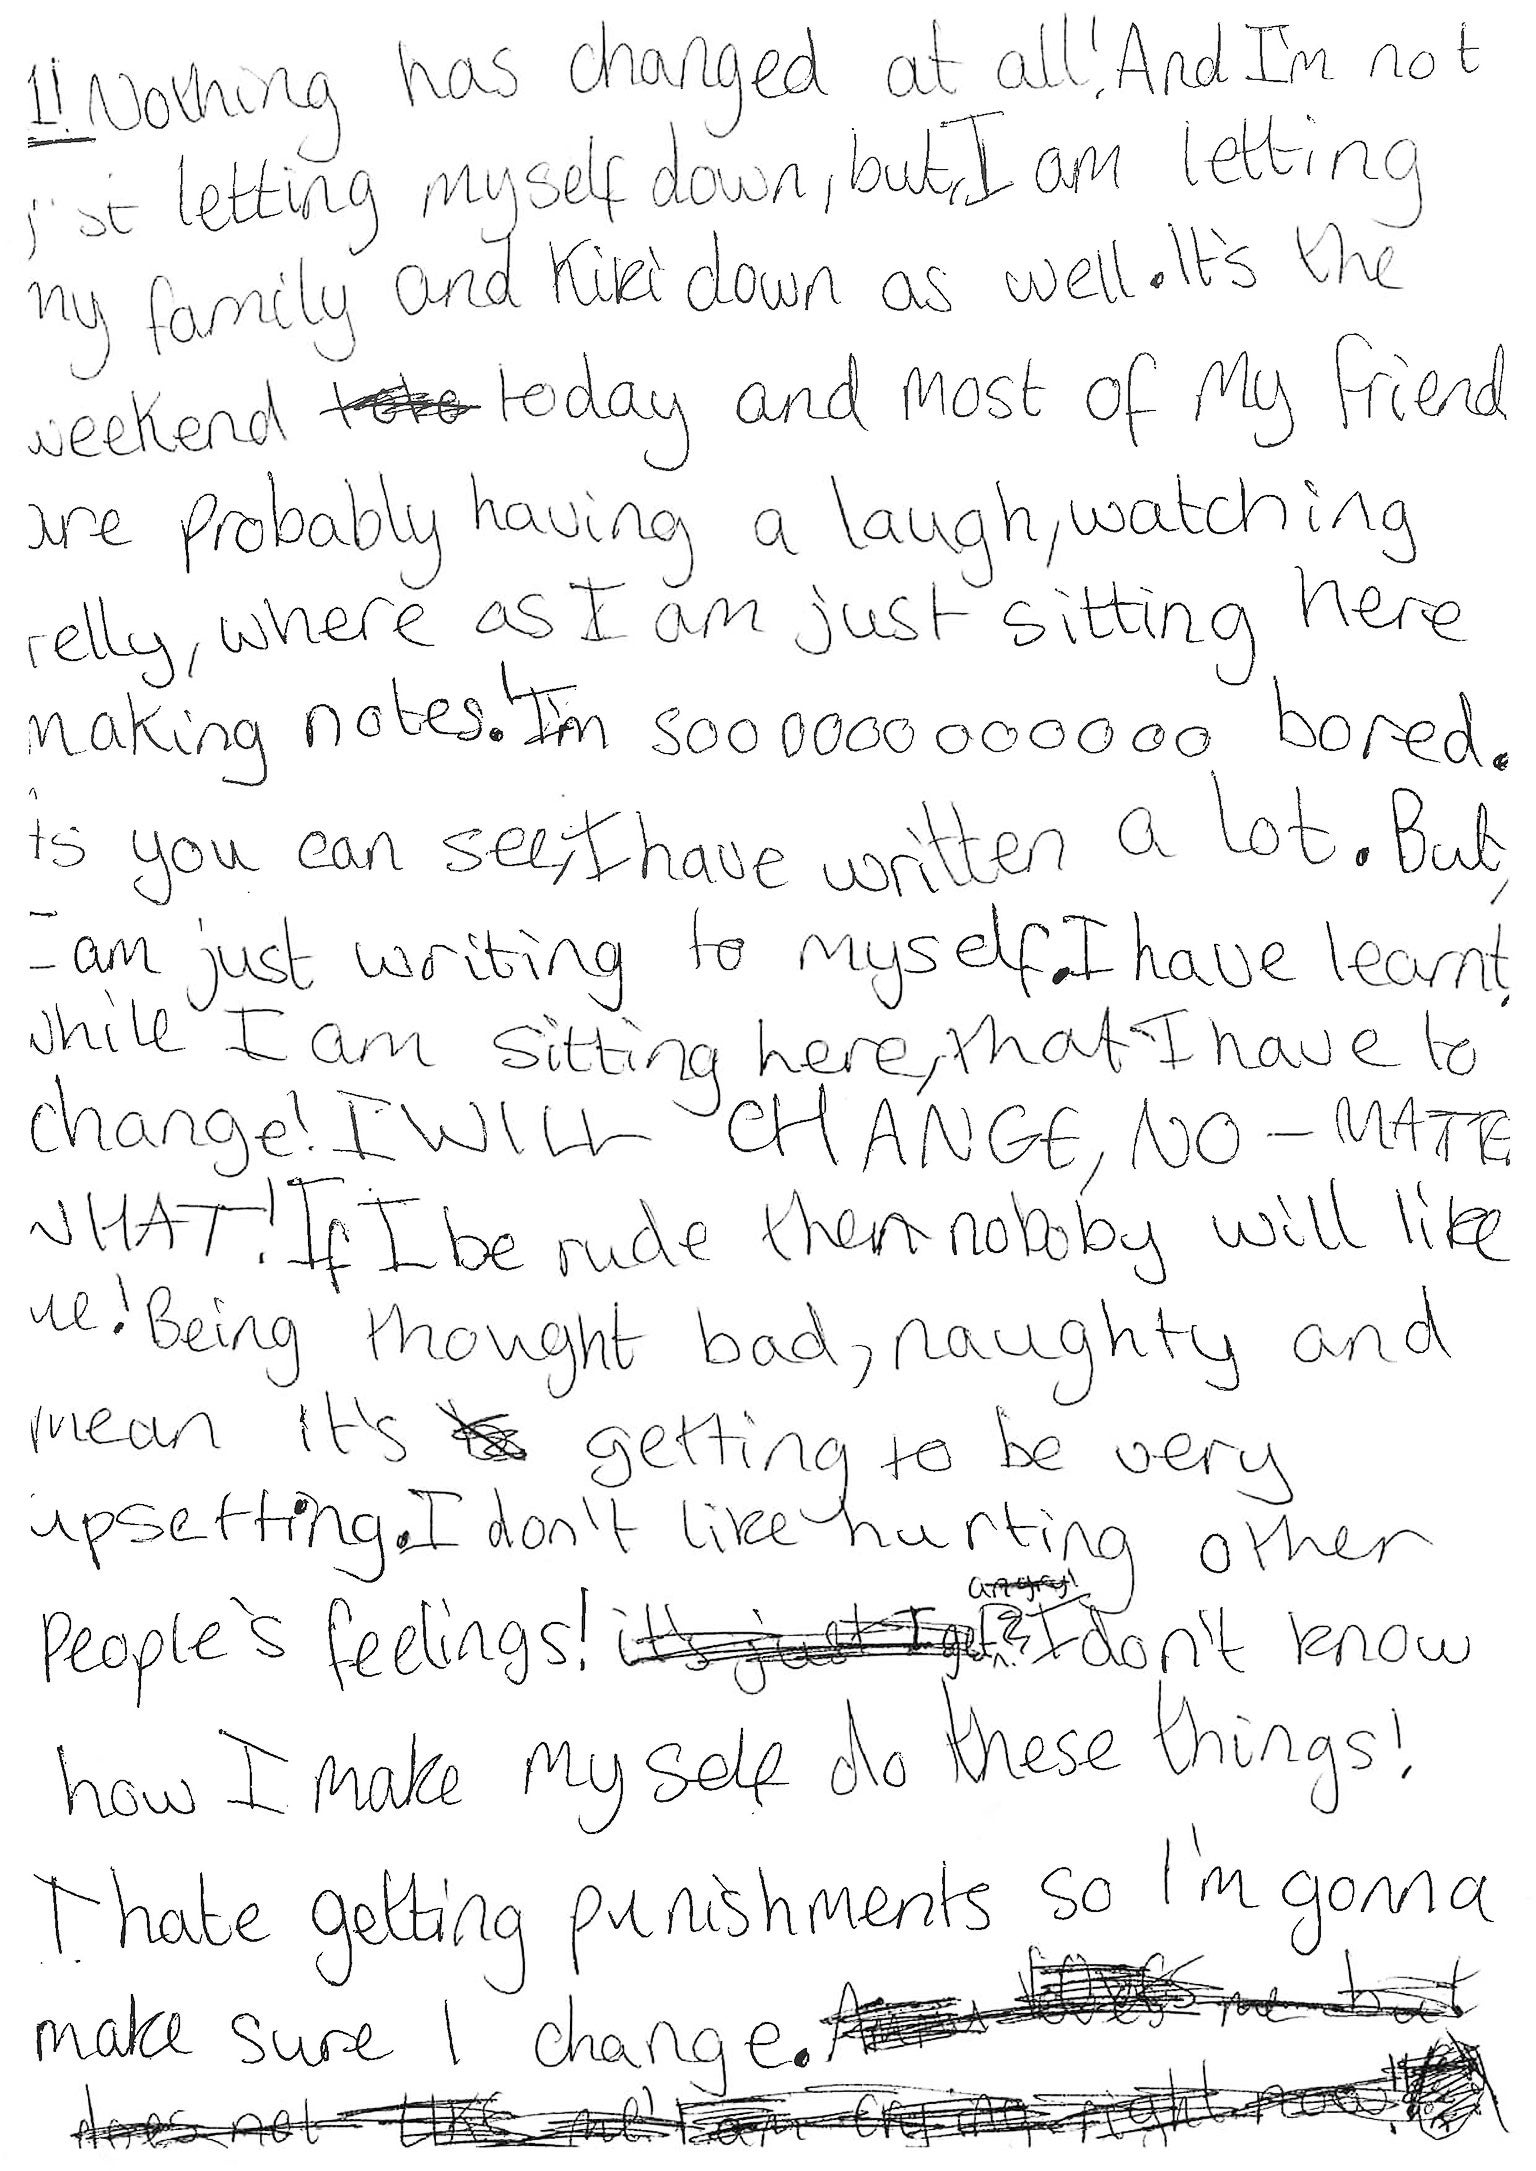 1! Nothing has changed at all! And I'm not
jst letting myself down, but, I am letting
my family and Kiki down as well. It's the
weekend today and most of my friend
are probably having a laugh, watching
relly, where as I am just sitting here
making notes! I'm soooooooooooooo bored.
ts you can see, I have written a lot. But,
I am just writing to myself. I have learnt,
while I am sitting here, that I have to
change! I WILL CHANGE, NO - MATTE
WHAT! If I be rude then noboby will like
me! Being thought bad, naughty and
mean it's getting to be very
upsetting. I don't like hurting other
People's feelings! it's just I get angry! I don't know
how I make myself do these things!
I hate getting punishments so I'm gonna
make sure I change. loves me but
does not like me! I am crying right now!